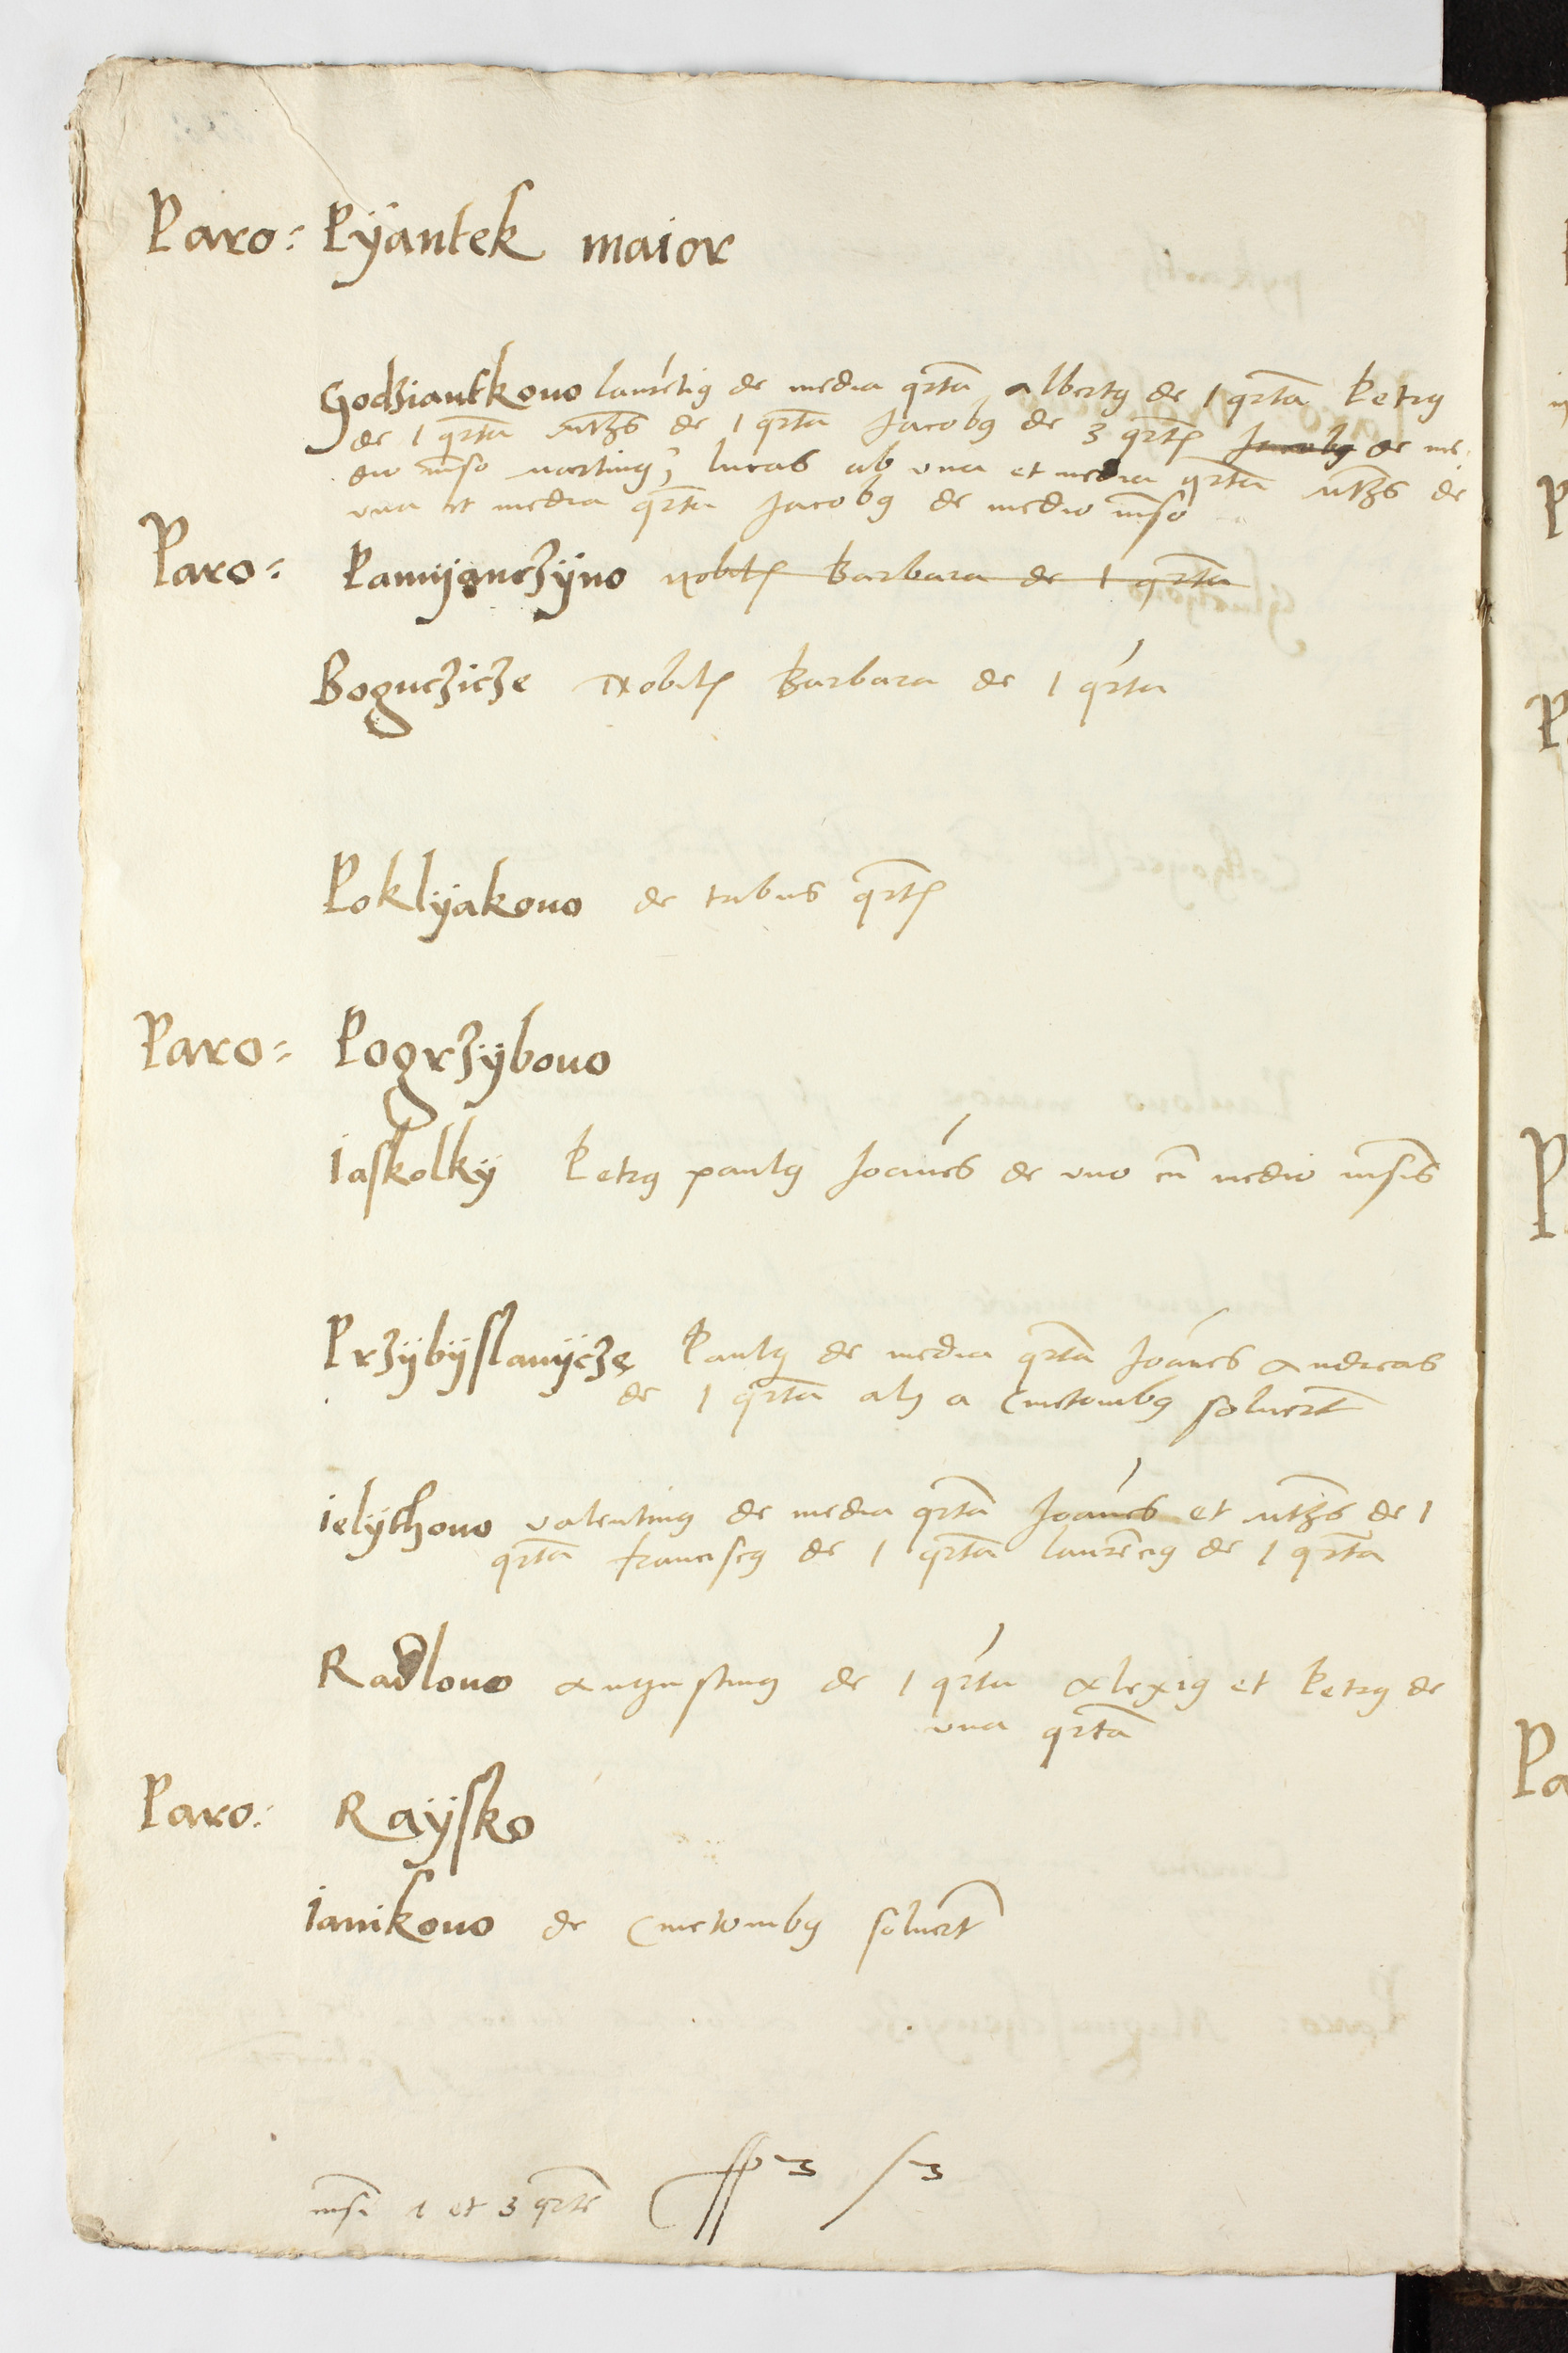 Paro: Pÿantek maior
Godziantkouo laurētiꝰ de media qrta albertꝰ de 1 qrta Petrꝰ
de 1 qrta de 1 qrta Jacobꝰ de 3 qrt Jacobꝰ de me
dio māso martinꝰ, lucas ab vna et media qrta de
vna et media qrta Jacobꝰ de medio māso
Paro: Nobil Barbara de 1 qrta
Boguczicze Nobil Barbara de 1 qrta
Poklÿakouo de tribus qrt
Paro: Pogrzÿbouo
Iaskolkÿ Petrꝰ paulꝰ Joānes de vno cū medio māsis
Przÿbÿslauÿcze Paulꝰ de media qrta Joānes Andreas
de 1 qrta alij a cmetonibꝰ soluert
Ielÿthouo valentinꝰ de media qrta Joānes et de 1
qrta franciscꝰ de 1 qrta laurēciꝰ de 1 qrta
Radlouo Augustinꝰ de 1 qrta Alexiꝰ et Petrꝰ de
vna qrta
Paro: Raÿsko
Ianikouo de cmetonibꝰ soluert
māsi 1 et 3 qrte